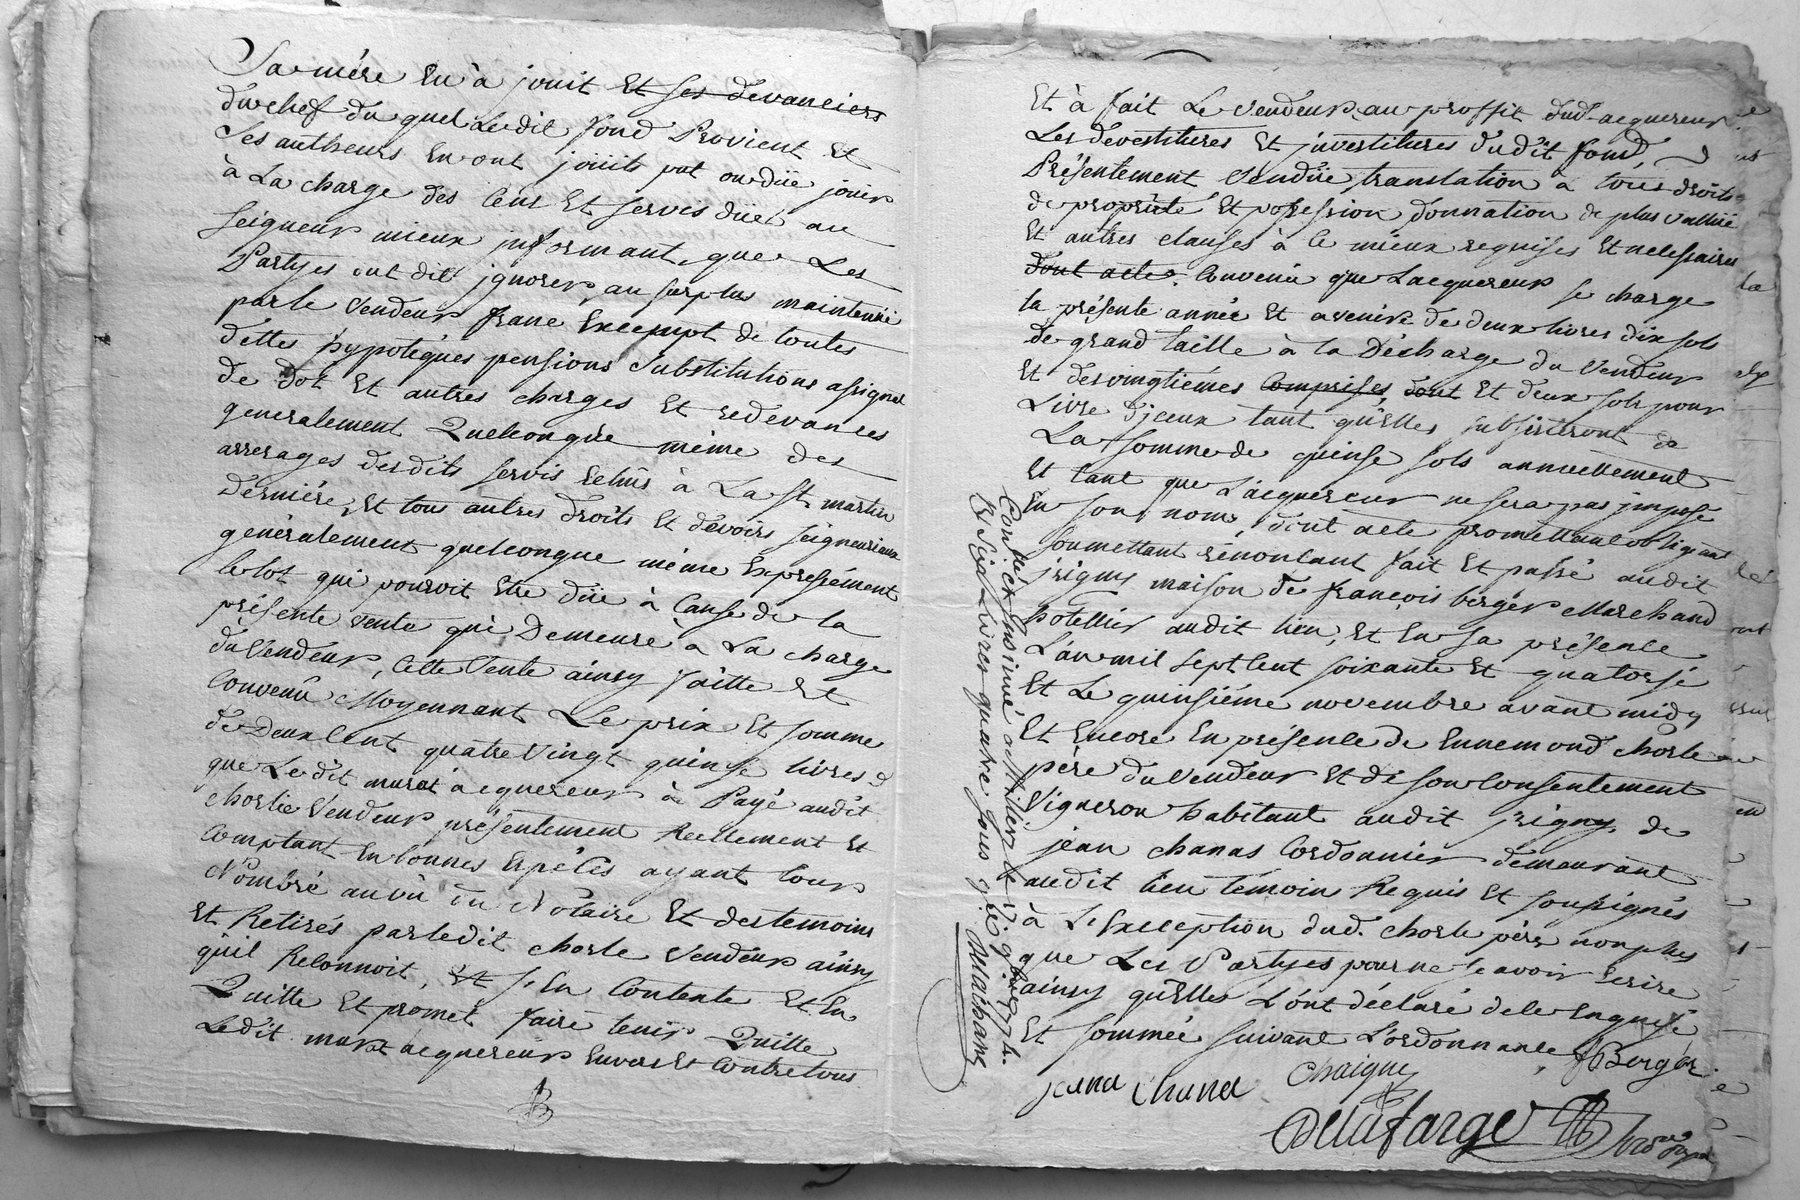 Sa mére En à jouit Et ses devanciers
du chef du quel Ledit fond Provient Et
Ses autheurs En ont jouit put ou düe jouir
à La charge des Cens Et servis düet au
seigneur mieux jnformant, que Les
Partyes ont dit jgnorer, au surplus maintenüe
par le Vendeur franc Exempt de toutes
dettes hypotéques pensions Substitutions assignat
de dot Et autres charges Et redevances
generalement Quelconque même des
arrerages desdits servis Echûs à La St martin
derniére, Et tous autres droits Et devoirs seigneuriaux
généralement quelconque méme Expressément
le lot qui pouroit Etre düe à Cause de la
présente vente qui Demeure à La charge
du Vendeur, Cette Vente ainsy faitte Et
Convenû Moyennant Le prix Et somme
de Deux Cent quatre Vingt quinse livres
que Ledit murat acquereur à Payé audit
chorlie Vendeur présentement Reellement Et
Comptant En bonnes Espéces ayant Cour
Nombré au vû du Nôtaire Et des temoins
Et Retirés par ledit chorle Vendeur ainsy
qu'il Reconnoit, Et s'En Contente Et En
Quitte Et promet faire tenir Quitte
Ledit murat acquereur Envers Et Contre tous
Et à fait Le Vendeur au proffit dud. acquereur
Les dévestitures Et jnvestitures dudit fond,
Présentement Vendüe, translation a tous droits
de propriété Et possession donnation de plus vallüe
Et autres clauses à Ce mieux requises Et necessaires
dont acte. Convenu que Lacquereur se charge
la présente année Et avenir de deux livres dix sols
de grand taille à la Décharge du Vendeur
Et des vingtiémes Comprises, dont Et deux sols pour
Livre d'jceux tant qu'Elles subsisteront de
La somme de quinse sols annuellement
Et tant que L'acquereur ne sera pas jmposé
En son nom, dont acte promettant obligeant
soumettant rénoncant fait Et passé audit
jrigny maison de françois berger Marchand
hotellier audit lieu, Et En sa présence
L'an mil sept Cent soixante Et quatorsé
Et Le quinsiéme novembre avant midy
Et Encore En présence de Ennemond chorle
pére du Vendeur Et de son Consentement
Vigneron habitant audit jrigny, de
jean chanas Cordonnier demeurant
audit lieu témoin Requis Et soussignés
à L'Exception dud. chorle pére non plus
que Les Partyes pour ne sçavoir Ecrire
ainsy qu'Elles L'ont déclaré de ce Enquis
Et sommée suivant L'ordonnance, f Berger
jeana Chana Chaigne
Delafarge
Controlé Et Insinué a Millery le 17 9bre 1774.
R Six Livres quatre sous